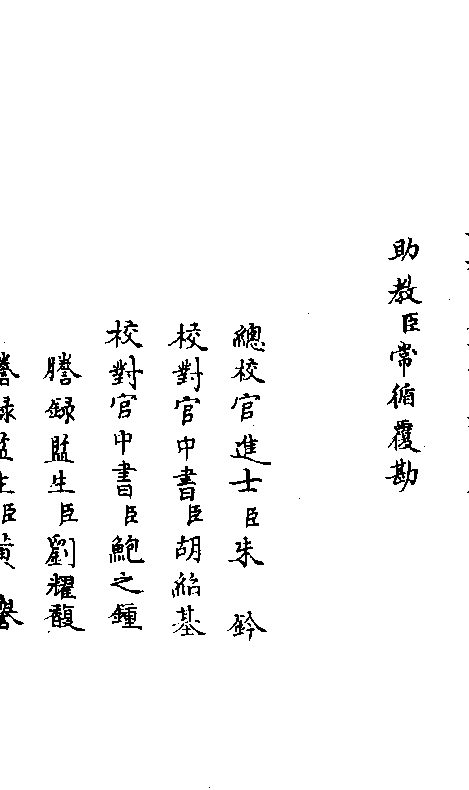 助教臣常循覆勘
總校官進士臣朱鈐
校對官中書臣胡紹基
校對官中書臣鮑之鍾
謄録監生臣劉耀馥
謄録監生臣黄譽